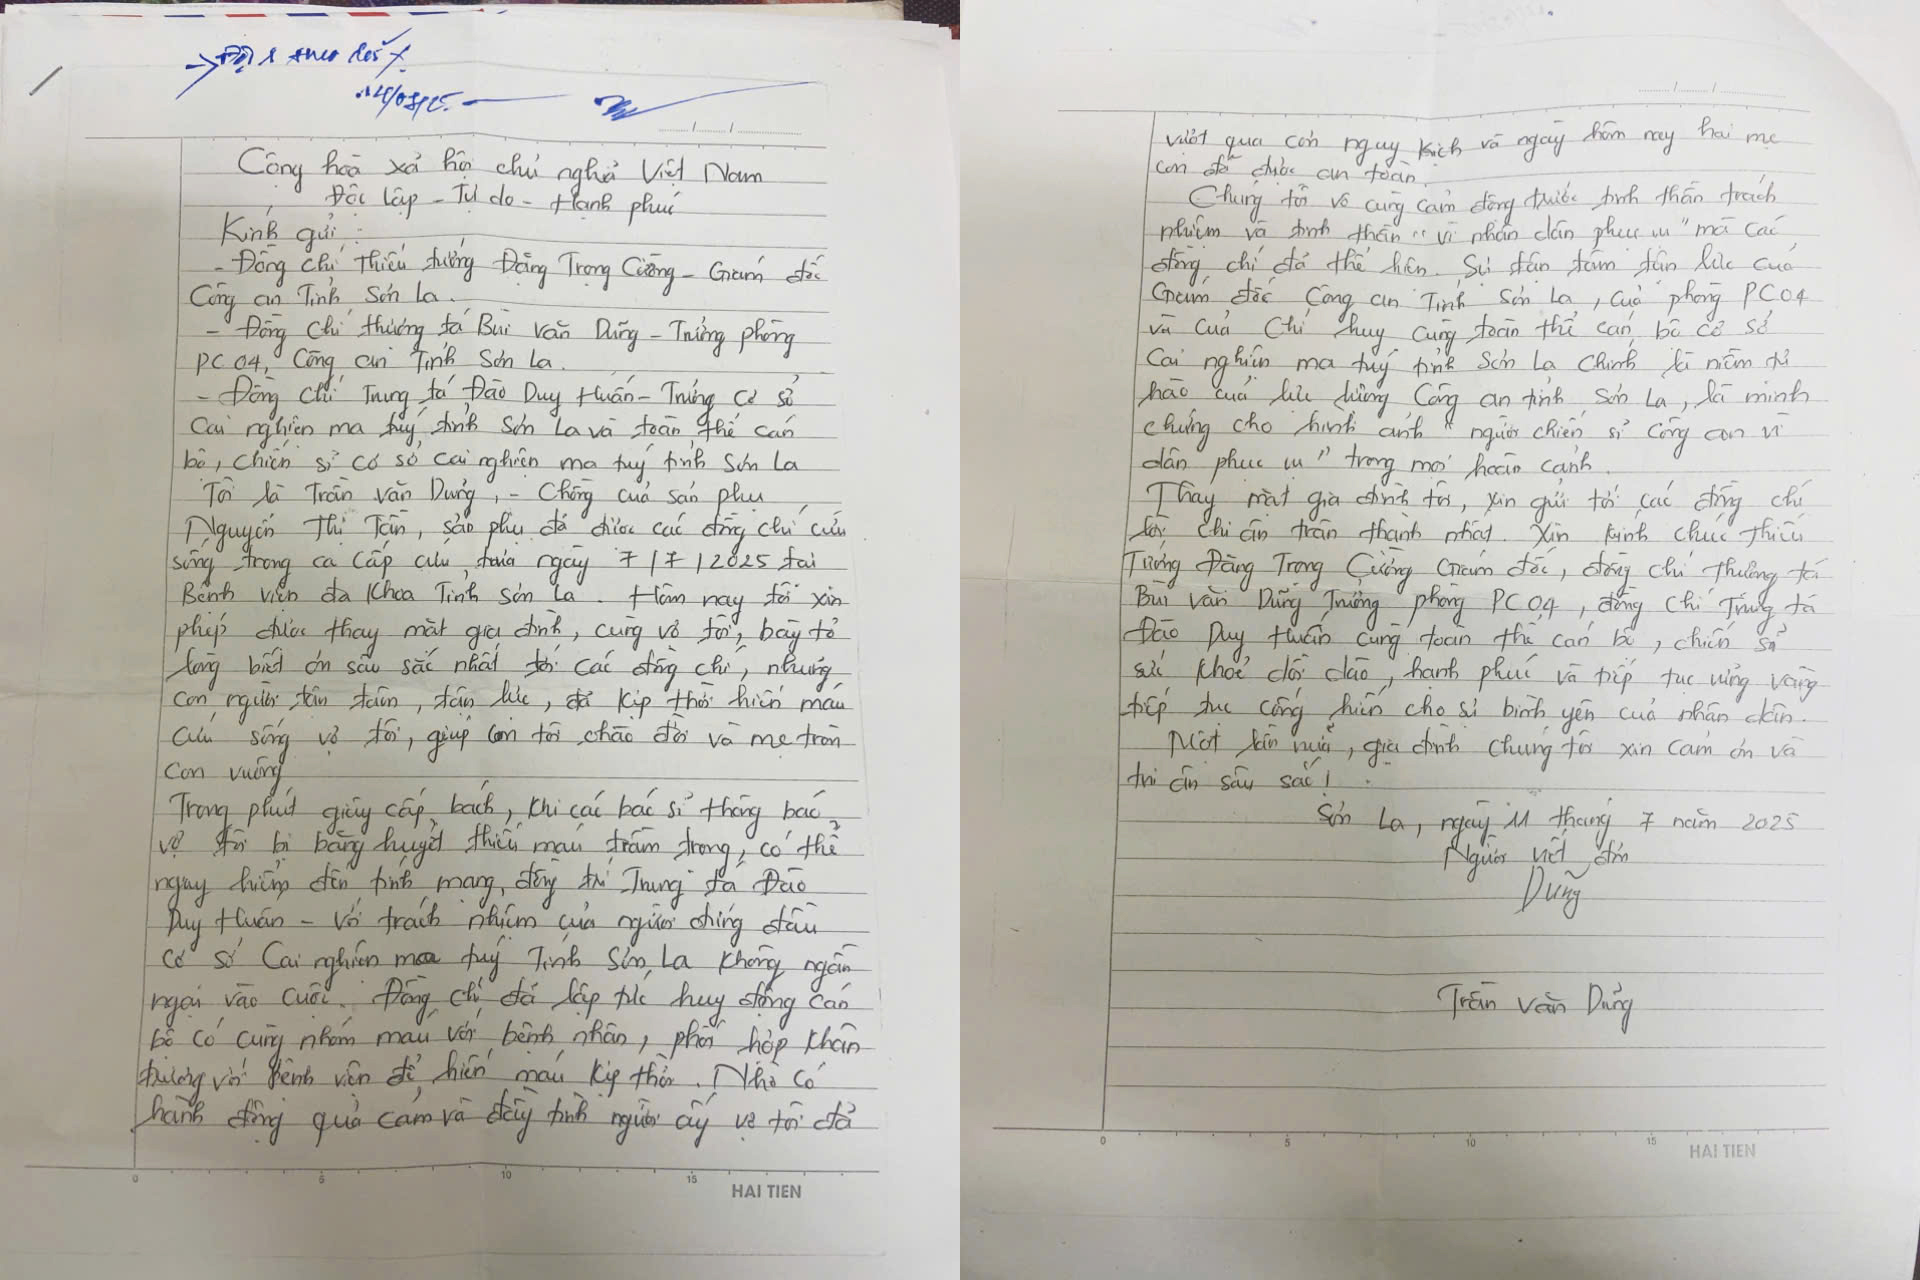 theo dõi
Cộng hoà xã hội chủ nghĩa Việt Nam
Độc lập - Tự do - Hạnh phúc
Kính gửi :
- Đồng chí Thiếu tướng Đặng Trọng Cường - Giám đốc
Công an Tỉnh Sơn La.
- Đồng chí thượng tá Bùi Văn Dũng - Trưởng phòng
PC04, Công an Tỉnh Sơn La.
- Đồng chí Trung tá Đào Duy Huấn - Trưởng cơ sở
Cai nghiện ma tuý tỉnh Sơn La và toàn thể cán
bộ, chiến sĩ cơ sở cai nghiện ma tuý tỉnh Sơn La
Tôi là Trần Văn Dũng, - Chồng của sản phụ
Nguyễn Thị Tần, sản phụ đã được các đồng chí cứu
sống trong ca cấp cứu, trưa ngày 7/7/2025 tại
Bệnh viện đa khoa Tỉnh Sơn La. Hôm nay tôi xin
phép được thay mặt gia đình, cùng vợ tôi, bày tỏ
lòng biết ơn sâu sắc nhất tới các đồng chí, những
con người tận tâm, tận lực, đã kịp thời hiến máu
cứu sống vợ tôi, giúp con tôi chào đời và mẹ tròn
con vuông
Trong phút giây cấp bách, khi các bác sĩ thông báo
vợ tôi bị băng huyết thiếu máu trầm trọng, có thể
nguy hiểm đến tính mạng, đồng trí Trung tá Đào
Duy Huấn - với trách nhiệm của người đứng đầu
cơ sở Cai nghiện ma tuý Tỉnh Sơn La không ngần
ngại vào cuộc. Đồng chí đã lập tức huy động cán
bộ có cùng nhóm máu với bệnh nhân, phối hợp khẩn
trương với Bệnh viện để hiến máu kịp thời. Nhờ có
hành động quả cảm và đầy tình người ấy vợ tôi đã
HAI TIEN
vượt qua cơn nguy kịch và ngày hôm nay hai mẹ
con đã được an toàn.
Chúng tôi vô cùng cảm động trước tinh thần trách
nhiệm và tinh thần "vì nhân dân phục vụ" mà các
đồng chí đã thể hiện. Sự tận tâm tận lực của
Giám đốc Công an Tỉnh Sơn La, của phòng PC04
và của Chỉ huy cùng toàn thể cán bộ cơ sở
Cai nghiện ma tuý tỉnh Sơn La chính là niềm tự
hào của lực lượng Công an tỉnh Sơn La, là minh
chứng cho hình ảnh "người chiến sĩ Công an vì
dân phục vụ" trong mọi hoàn cảnh.
Thay mặt gia đình tôi, xin gửi tới các đồng chí
lời chi ân trân thành nhất. Xin kính chúc Thiếu
Tướng Đặng Trọng Cường Giám đốc, đồng chí Thượng tá
Bùi Văn Dũng Trưởng phòng PC04, đồng chí Trung tá
Đào Duy Huấn cùng toàn thể cán bộ, chiến sĩ
sức khoẻ dồi dào, hạnh phúc và tiếp tục vững vàng
tiếp tục cống hiến cho sự bình yên của nhân dân.
Một lần nữa, gia đình chúng tôi xin cảm ơn và
tri ân sâu sắc!
Sơn La, ngày 11 tháng 7 năm 2025
Người viết đơn
Dũng
Trần Văn Dũng
HAI TIEN